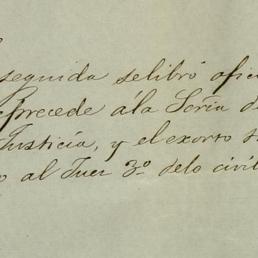 seguida se libró ofici
precede á la Soría d
Justicia, y el exorto s
o al Juez 3º. de lo civil